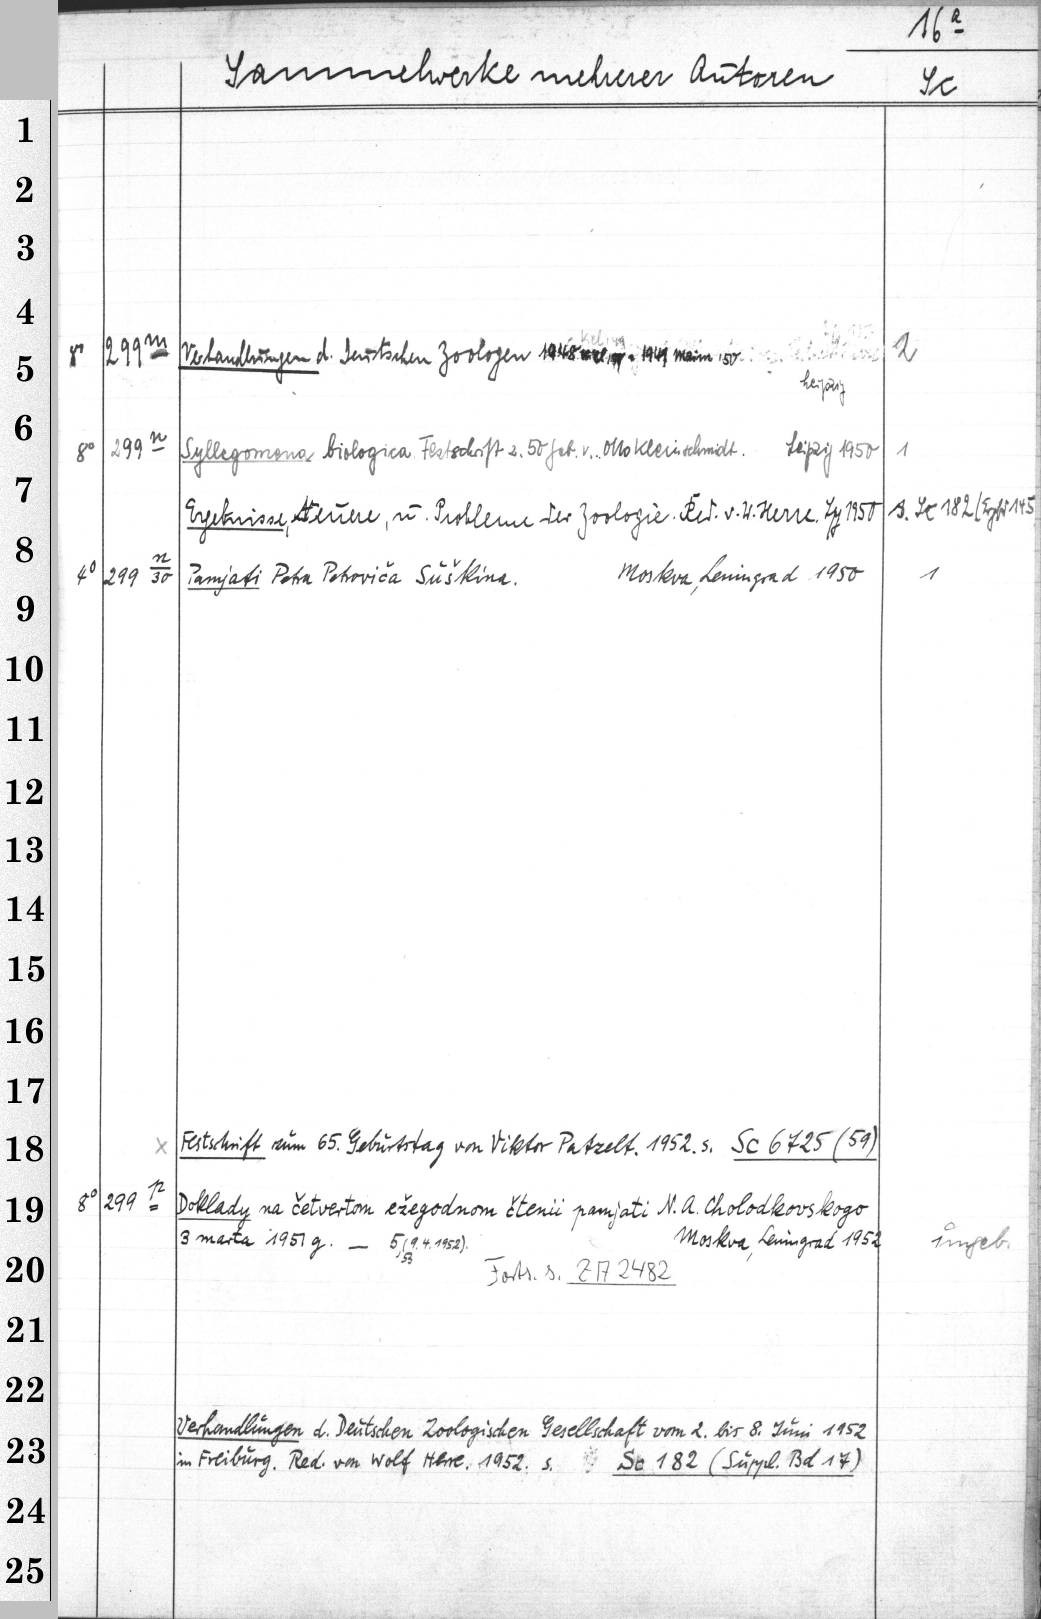 16 a
Sammelwerke mehrerer Autoren Sc
1
2
3
4
Kiel 49
5 8° 299 m Verhandlungen d. Deutschen Zoologen 1948 1949 Mainz 50 2
Leipzig
6 8° 299 n Syllegomena biologica Festschrift z. 50 Geb. v. Otto Kleinschmidt. Leipzig 1950 1
7 Ergebnisse, Neuere, u. Probleme der Zoologie. Red. v. W. Herre. Lpz 1950 s. Sc 182 (Ergbd 145
8 4° 299 n/30 Pamjati Petra Petroviča Suškina. Moskva, Leningrad 1950 1
9
10
11
12
13
14
15
16
17
18 x Festschrift zum 65. Geburtstag von Viktor Patzelt. 1952. s. Sc 6725 (59)
19 8° 299 p Doklady na četvertom ežegodnom čtenii pamjati N. A. Cholodkovskogo
3 marta 1951 g. — 5, 53 (9.4.1952). Moskva, Leningrad 1952 ungeb.
20 Forts. s. ZA 2482
21
22
Verhandlungen d. Deutschen Zoologischen Gesellschaft vom 2. bis 8. Juni 1952
23 in Freiburg. Red. von Wolf Herre. 1952. s. Sc 182 (Suppl. Bd 17)
24
25